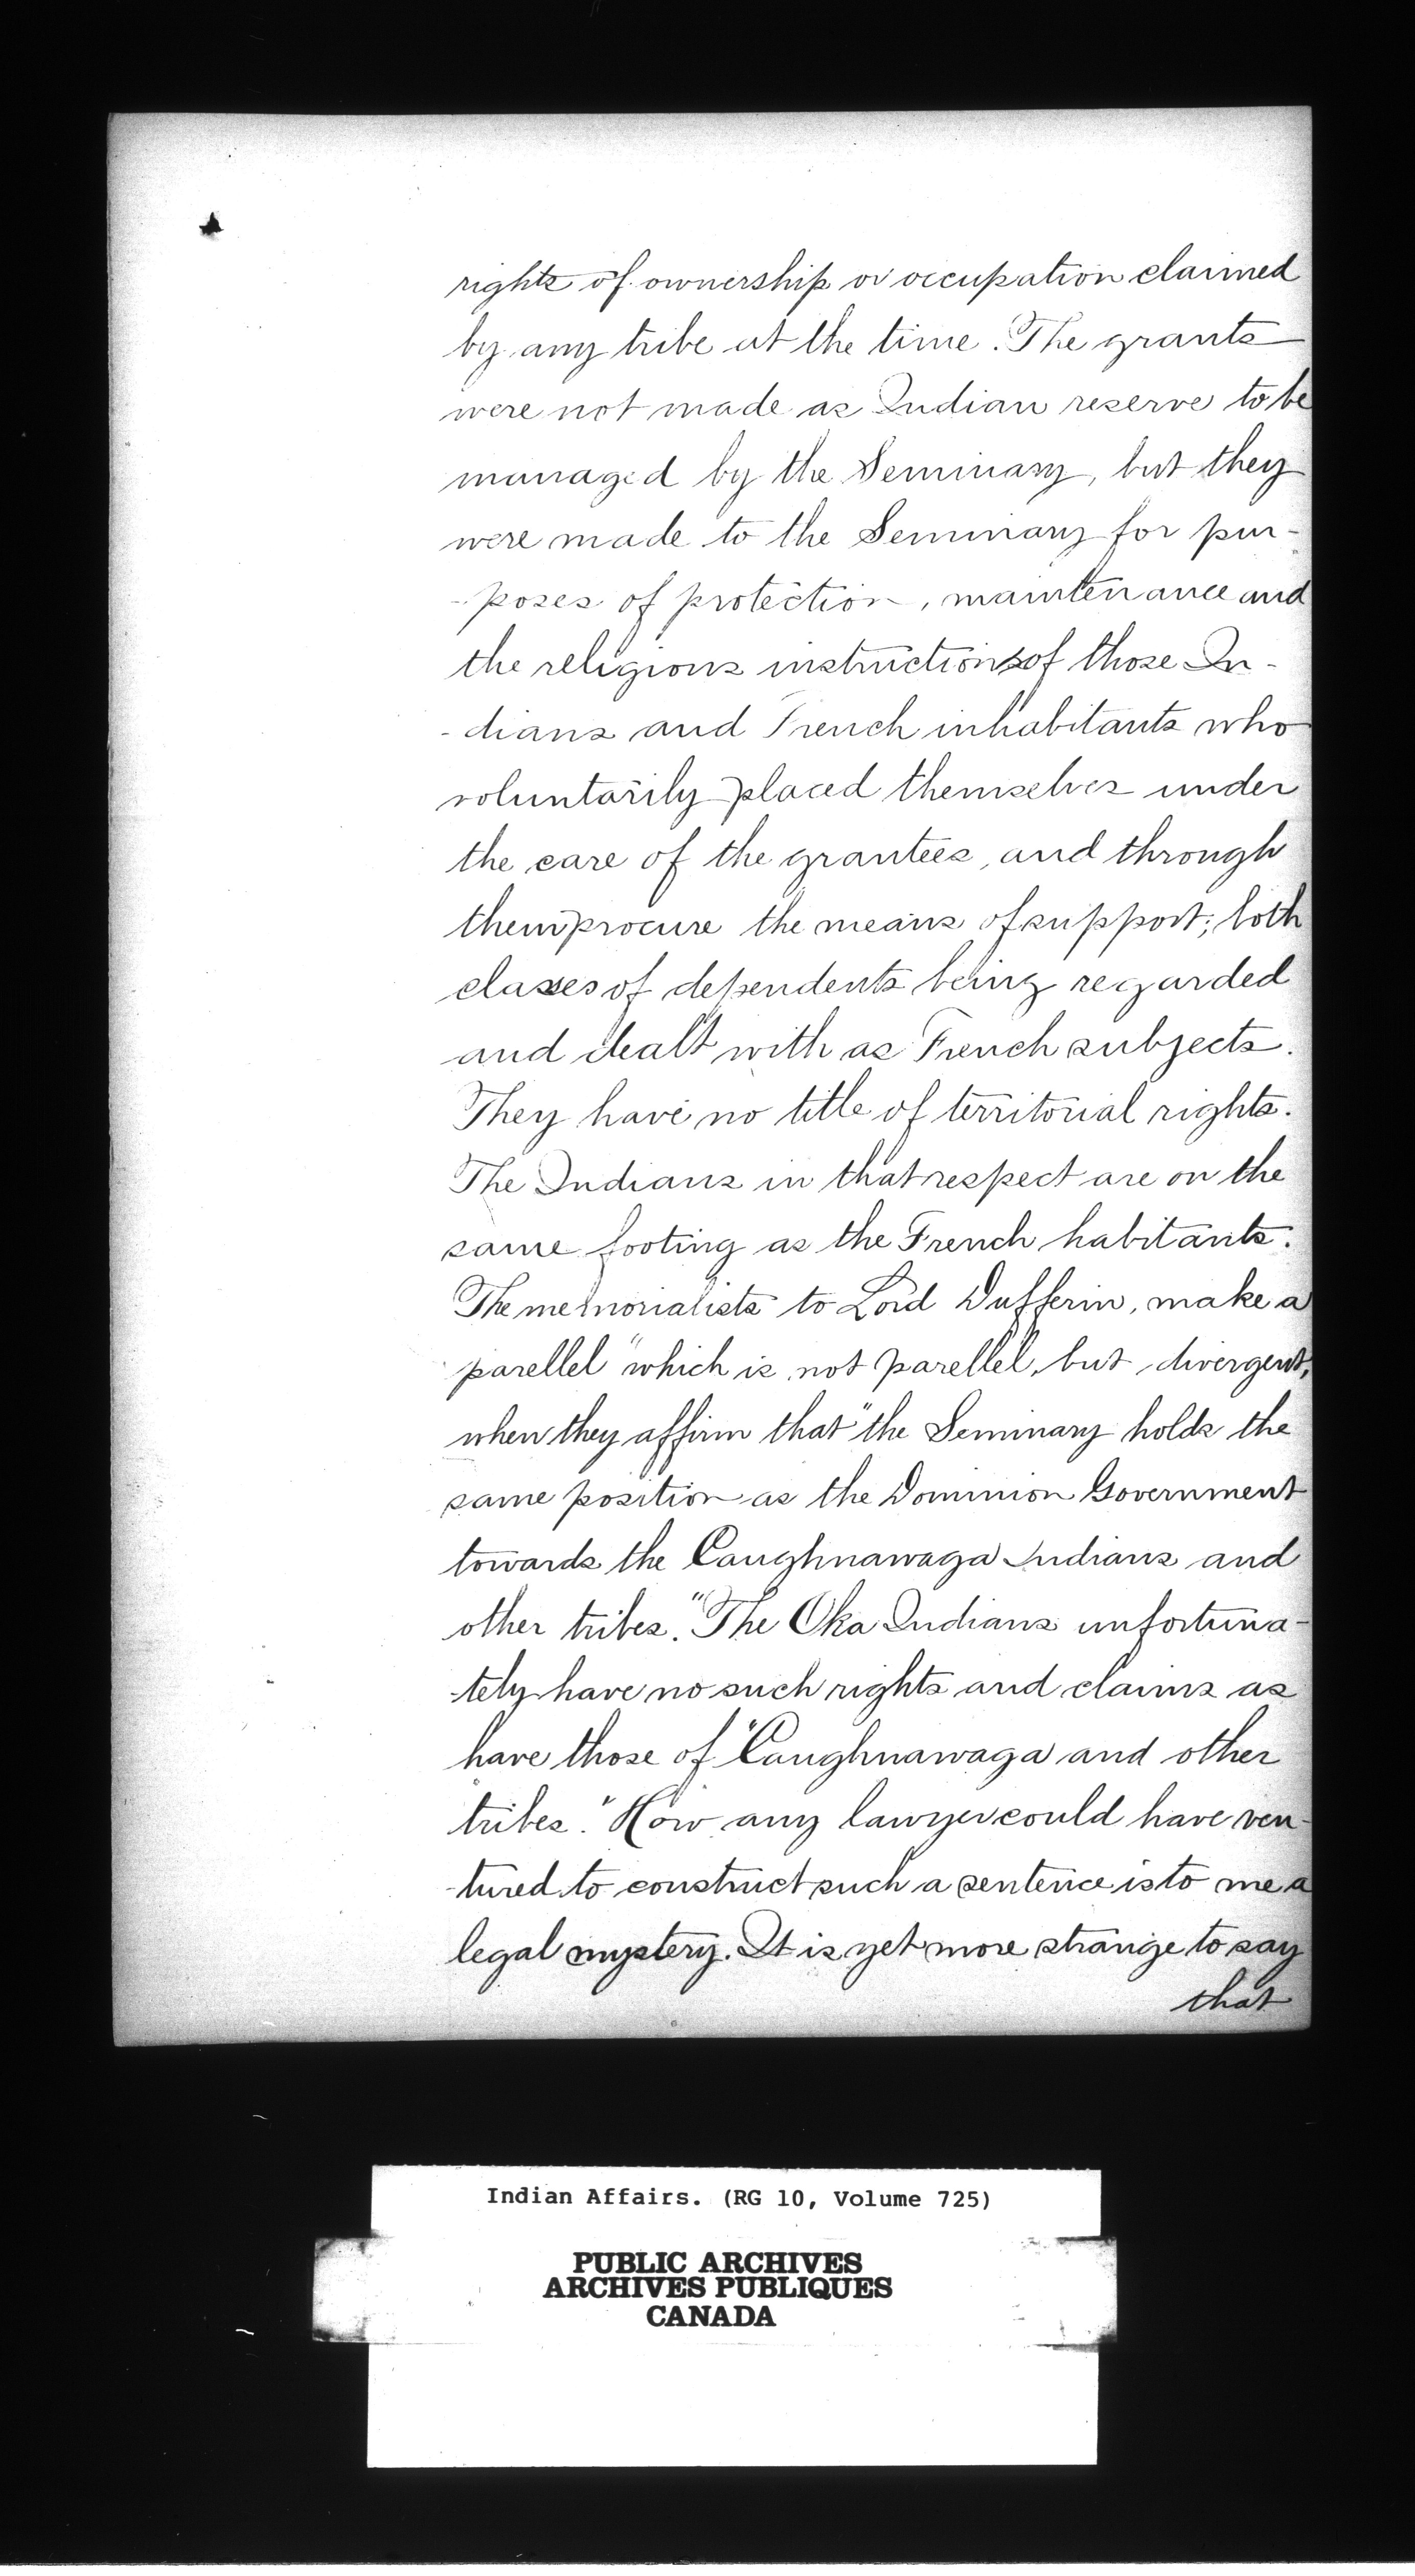 rights of ownership or occupation claimed
by any tribe at the time. The grants
were not made as Indian reserve to be
managed by the Seminary, but they
were made to the Seminary for pur-
-poses of protection, maintenance and
the religious instructions of those In-
-dians and French inhabitants who
voluntarily placed themselves under
the care of the grantees, and through
them procure the means of support; both
classes of dependents being regarded
and dealt with as French subjects.
They have no title of territorial rights.
The Indians in that respect are on the
same footing as the French habitants.
The memorialists to Lord Dufferin, make a
parellel "which is not parellel, but divergent,
when they affirm that "the Seminary holds the
same position as the Dominion Government
towards the Caughnawaga Indians and
other tribes." The Oka Indians unfortuna-
-tely have no such rights and claims as
have those of "Caughnawaga and other
tribes." How any lawyer could have ven-
-tured to construct such a sentence is to me a
legal mystery. It is yet more strange to say
that
Indian Affairs. (RG 10, Volume 725)
PUBLIC ARCHIVES
ARCHIVES PUBLIQUES
CANADA